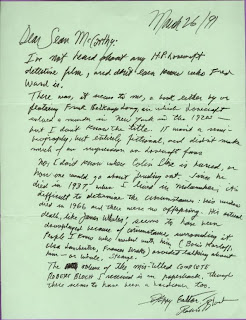 March 26/91
Dear Sean McCarthy:
I'm not heard about any H.P. Lovecraft
detective film, and don't even know who Fred
Ward is.
There was, it seems to me, a book letter by or
featuring Frank Belknap Long, in which Lovecraft
solved a murder in New York in the 1920s —
but I don't know the title. It wasn't a
biography but entirely fictional, and didn't make
much of an impression on Lovecraft fans.
No, I don't know who Colin Clive is buried, or
how one would go about finding out. Since he
died in 1937, when I lived in Milwaukee, it's
difficult to determine the circumstances. His widow
died in 1966 and there were no offspring. His actual
death, like James Whale's, seems to have been
downplayed because of circumstances surrounding it
People I knew who worked with him (Boris Karloff,
Elsa Lanchester, Frances Drake) avoided talking about
him — or Whale, strange.
The volume of the mis-titled COMPLETE
ROBERT BLOCH I received is in paperback, though
there seems to have been a hardcover too.
Happy Easter
Robert Bloch